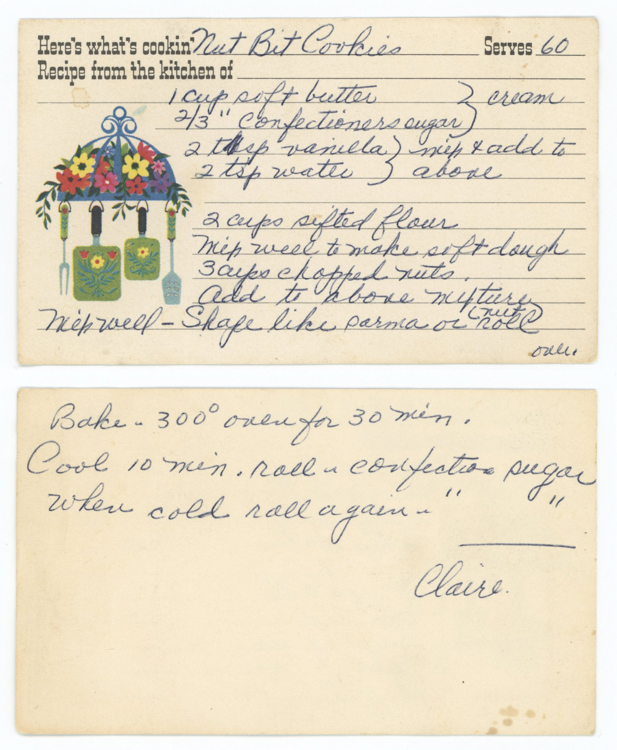 Here's what's cookin' Nut Bit Cookies Serves 60
Recipe from the kitchen of
1 cup soft butter } cream
2/3 " confectioners sugar }
2 tsp vanilla } mix & add to
2 tsp water } above
2 cups sifted flour
Mix well to make soft dough
3 cups chopped nuts.
Add to above mixture
(nut)
Mix well - Shape like parma or roll
over.
Bake - 300° oven for 30 min.
Cool 10 min. roll in confection sugar
When cold roll again in " "
Claire.